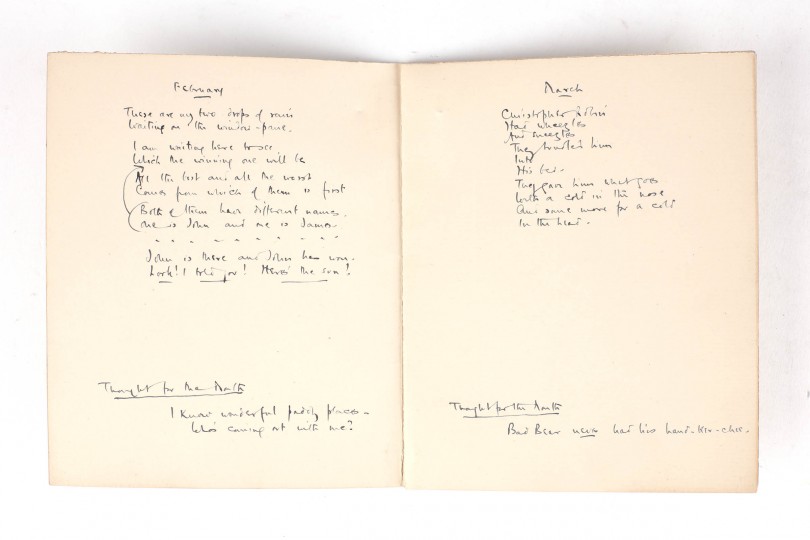 February
These are my two drops of rain
Waiting on the window-pane.
I am waiting here to see
Which the winning one will be
All the best and all the worst
Comes from which of them is first
Both of them have different names,
one is John and one is James.
" " " " " " " " "
John is there and John has won.
Look! I told you! Here's the sun!
Thought for the Month
I know wonderful puddly places –
Who's coming out with me?
March
Christopher Robin
Had wheezles
And sneezles
They bundled him
Into
His bed.
They gave him what goes
With a cold in the nose
And some more for a cold
In the head.
Thought for the Month
Bad Bear never had his hand-ker-chee.